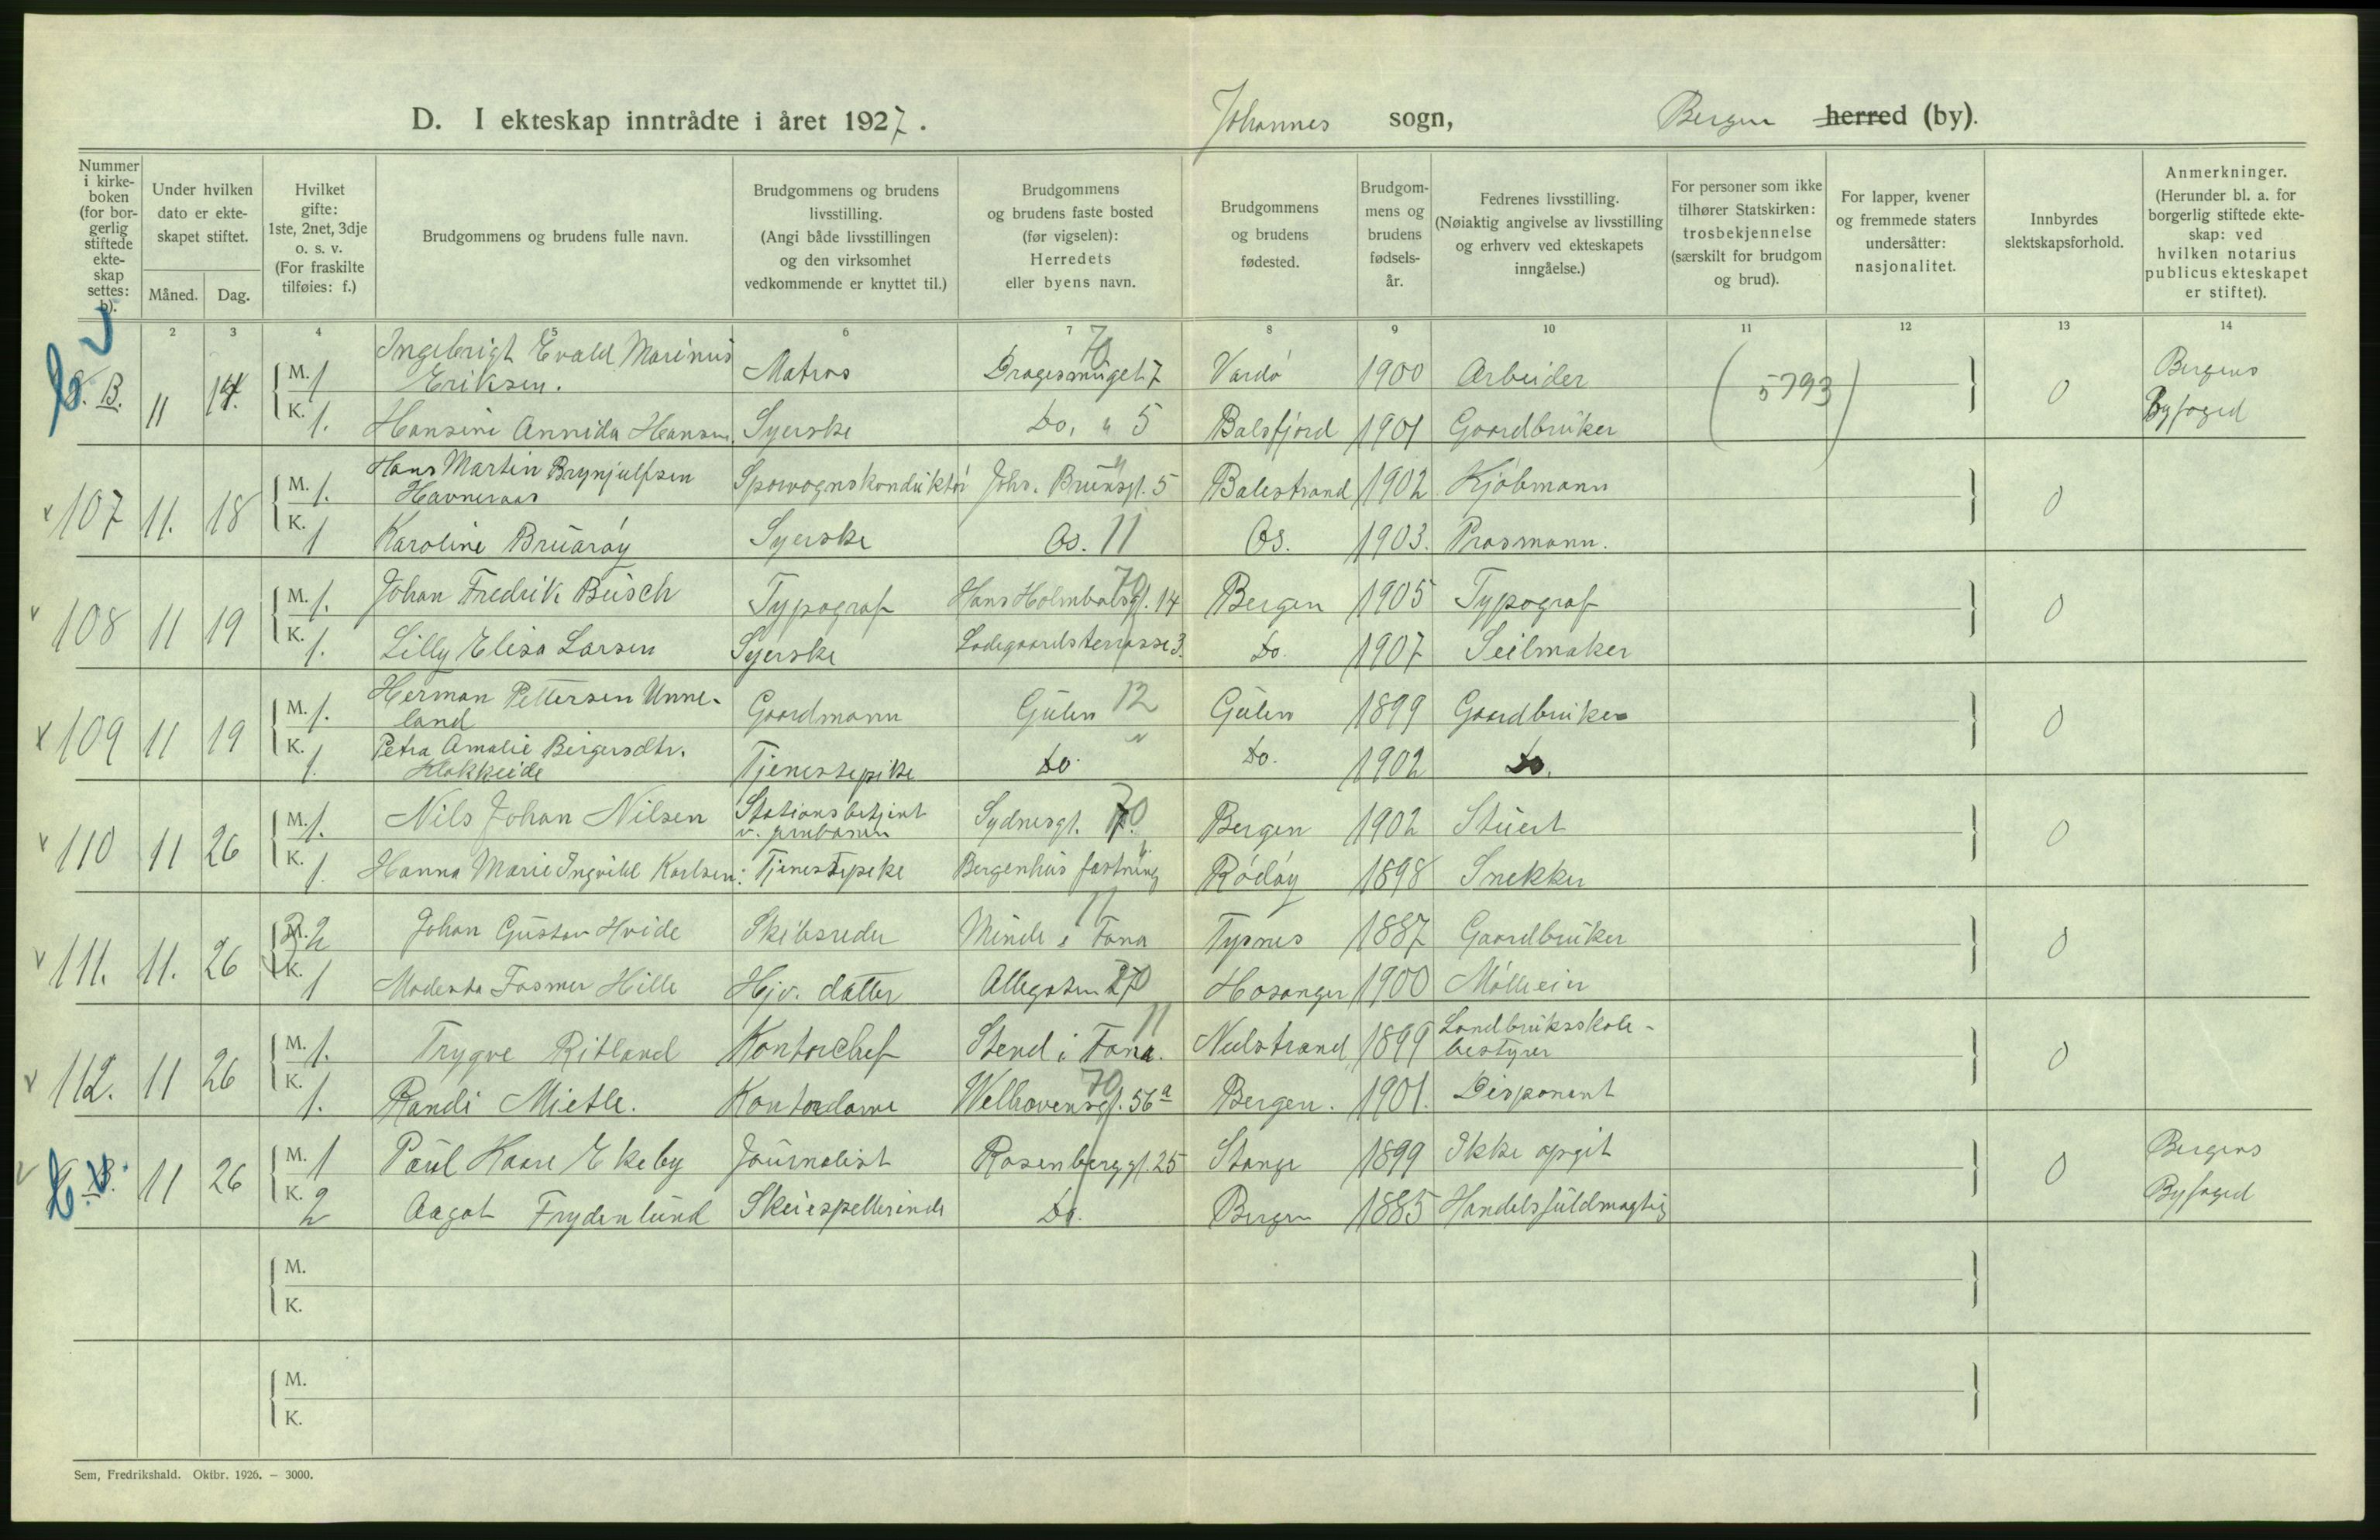 D. I ekteskap inntrådte i året 1927. Johannes sogn, Bergen herred (by).
Nummer i kirkeboken (for borgerlig stiftede ekteskap settes: b).
Under hvilken dato er ekteskapet stiftet.
Måned. Dag.
Hvilket gifte: 1ste, 2net, 3dje o. s. v. (For fraskilte tilføies: f.)
Brudgommens og brudens fulle navn.
Brudgommens og brudens livsstilling. (Angi både livsstillingen og den virksomhet vedkommende er knyttet til.)
Brudgommens og brudens faste bosted (før vigselen): Herredets eller byens navn.
Brudgommens og brudens fødested.
Brudgommens og brudens fødselsår.
Fedrenes livsstilling. (Nøiaktig angivelse av livsstilling og erhverv ved ekteskapets inngåelse.)
For personer som ikke tilhører Statskirken: trosbekjennelse (særskilt for brudgom og brud).
For lapper, kvener og fremmede staters undersåtter: nasjonalitet.
Innbyrdes slektskapsforhold.
Anmerkninger. (Herunder bl. a. for borgerlig stiftede ekteskap: ved hvilken notarius publicus ekteskapet er stiftet).
2 3 4 5 6 7 8 9 10 11 12 13 14
B. 11 14. M. 1 Ingebrigt Evald Marinus Eriksen. Matros Dragesmuget 7 70 Vardø 1900 Arbeider (5793) 0 Bergens Byfoged
K. 1. Hansine Annida Hansen. Syerske Do, " 5 Balsfjord 1901 Gaardbruker
107 11. 18 M. 1. Hans Martin Brynjulfsen Havneraas Sporvognskonduktør Johs. Brunsgt. 5 Balestrand 1902 Kjøbmann 0
K. 1 Karoline Bruarøy Syerske Os. 11 Os. 1903. Prosmann.
108 11 19 M. 1. Johan Fredrik Busch Typograf Hans Holmboesgt. 14 70 Bergen 1905 Typograf 0
K. 1. Lilly Elisa Larsen Syerske Ladegaardsterrasse 3. Do. 1907 Seilmaker
109 11 19 M. 1. Herman Pettersen Unneland Gaardmann Gulen 12 Gulen 1899 Gaardbruker 0
K. 1. Petra Amalie Bergersdtr. Klokkeide Tjenestepike Do. " Do. 1902 Do.
110 11 26 M. 1. Nils Johan Nilsen Stationsbetjent v. jernbanen Sydnesgt. 70 Bergen 1902 Stuert 0
K. 1. Hanna Marie Ingvild Karlsen: Tjenestepike Bergenhus fæstning Rødøy 1898 Snekker
111. 11. 26 M. 2 Johan Gustav Hvide Skibsreder Minde i Fana 11 Tysnes 1887 Gaardbruker 0
K. 1 Modesta Fasmer Hille Hjv. datter Allegaten 70 Hosanger 1900 Mølleeier
112. 11 26 M. 1. Trygve Ritland Kontorchef Stend i Fana. 11 Nedstrand 1899 Landbruksskolebestyrer 0
K. 1. Randi Mietle. Kontordame Welhavensgt. 56a 70 Bergen. 1901. Disponent
B. 11 26 M. 1 Paul Kaare Ekeby Journalist Rosenberggt. 25 Stange 1899 Ikke opgit 0 Bergens Byfoged
K. 2 Aagot Frydenlund Skuespellerinde Do. Bergen 1885 Handelsfuldmægtig
M.
K.
M.
K.
Sem, Fredrikshald. Oktbr. 1926. — 3000.